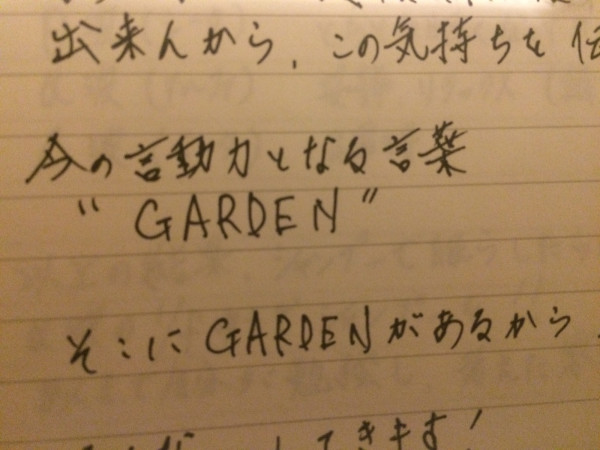 出来んから、この気持ちを伝
今の言動力となる言葉
“GARDEN”
そこにGARDENがあるから、
できます!